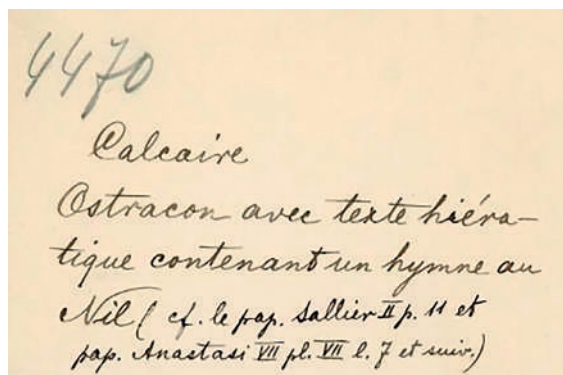 4470
Calcaire
Ostracon avec texte hiéra-
tique contenant un hymne au
Nil (cf. le pap. Sallier II p. 11 et
pap. Anastasi VII pl. VII l. 7 et suiv.)